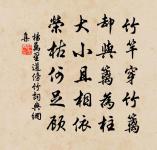 竹竿穿竹籬
却與籬為柱
大小且相依
榮枯何足顧
楊萬里道傍竹詞典網
集